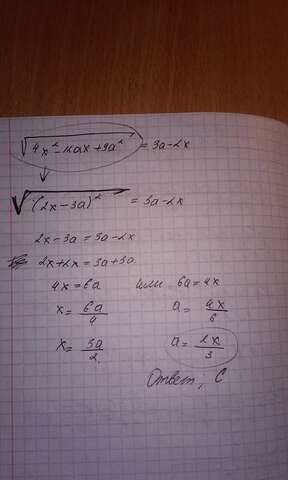 √4x²-12ax+9a² = 3a-2x
√(2x-3a)² = 3a-2x
2x-3a = 3a-2x
2x+2x = 3a+3a
4x = 6a или 6a = 4x
x = 6a/4 a = 4x/6
x = 3a/2 a = 2x/3
Ответ: C